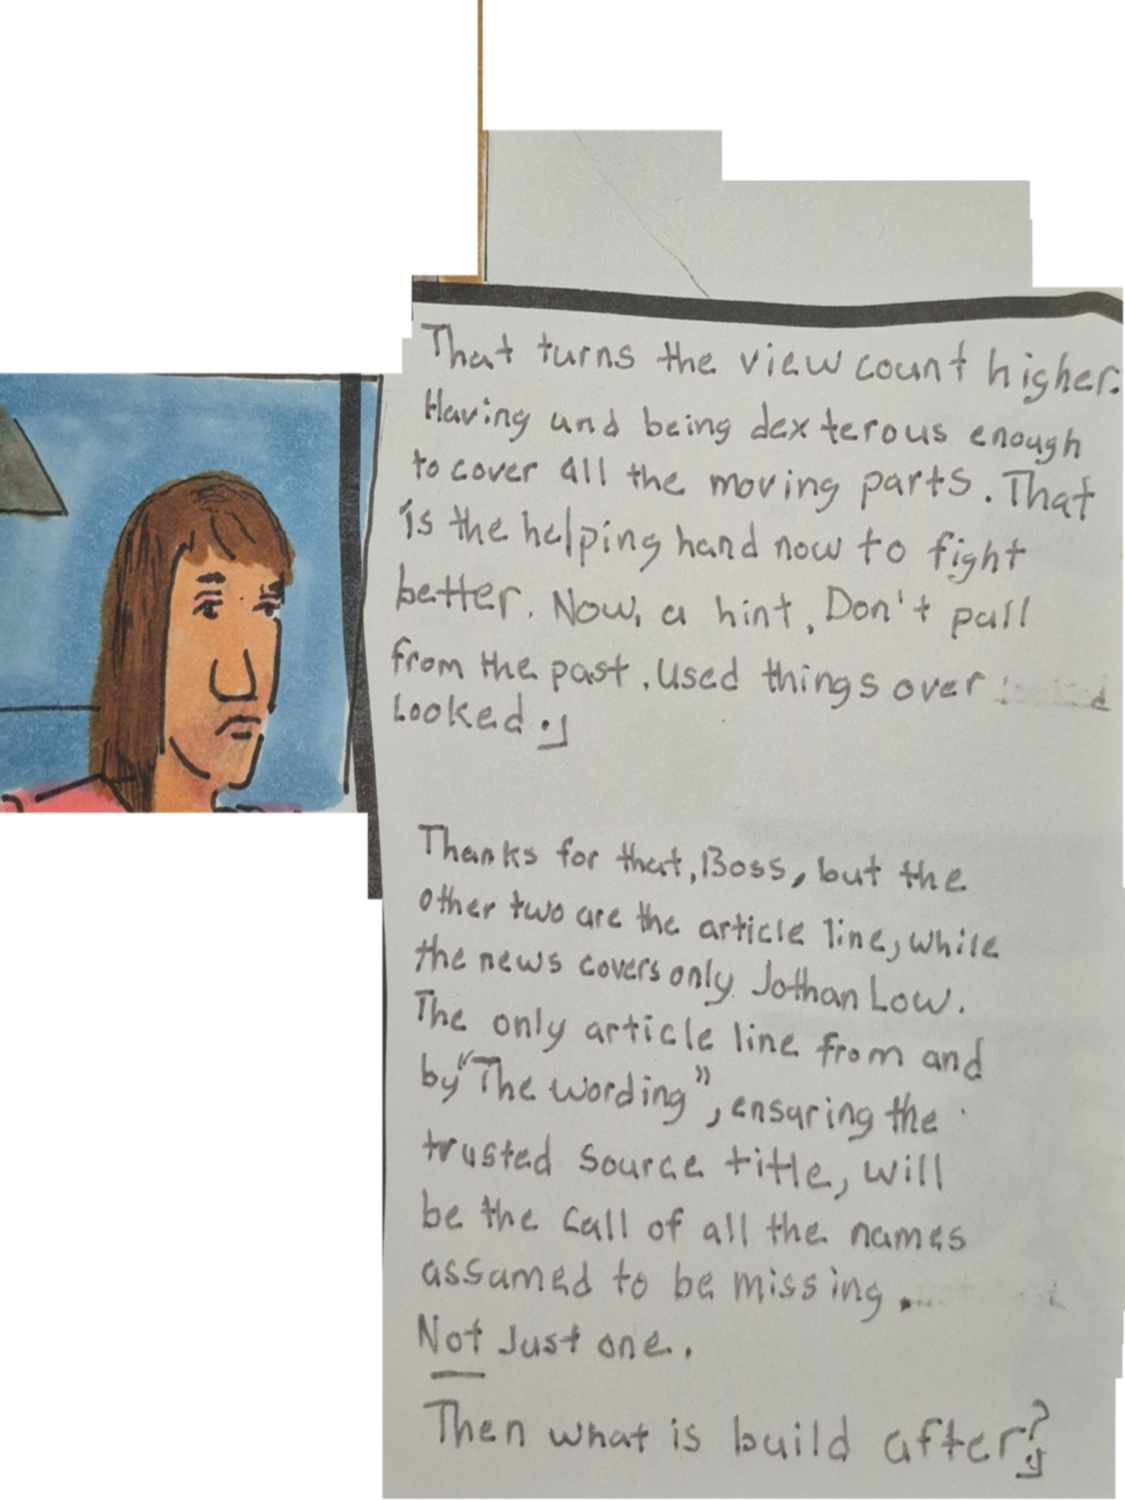 That turns the view count higher.
Having and being dexterous enough
to cover all the moving parts. That
is the helping hand now to fight
better. Now, a hint. Don't pull
from the past. Used things over
Looked.
Thanks for that, Boss, but the
other two are the article line, while
the news covers only Jothan Low.
The only article line from and
by "The Wording", ensuring the
trusted source title, will
be the call of all the names
assumed to be missing.
Not Just one.
Then what is build after?